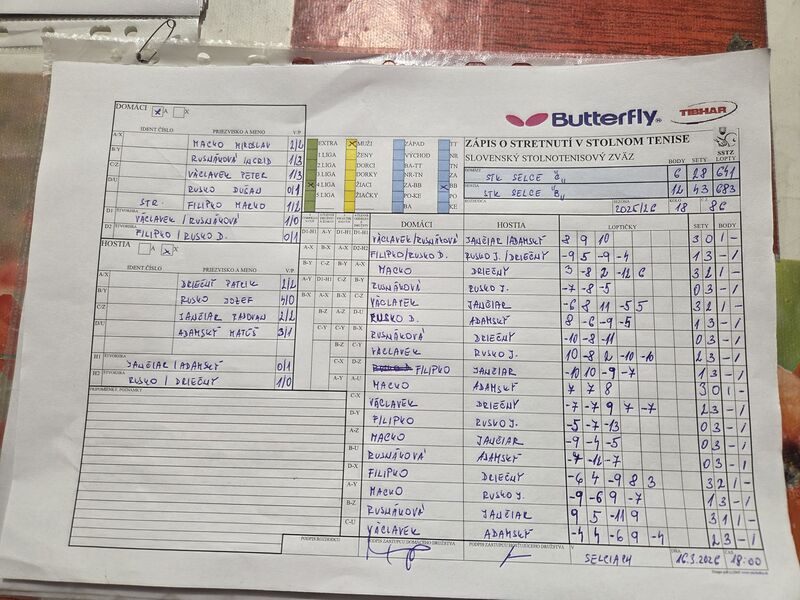 DOMÁCI X A X
IDENT ČÍSLO PRIEZVISKO A MENO V/P
A/X MACKO MIROSLAV 2/2
B/Y RUSNÁKOVÁ INGRID 1/3
C/Z VÁCLAVEK PETER 1/3
D/U RUSKO DUŠAN 0/1
STR. FILIPKO MARKO 1/2
D1 ŠTVORHRA VÁCLAVEK / RUSNÁKOVÁ 1/0
D2 ŠTVORHRA FILIPKO / RUSKO D. 0/1
HOSTIA A X X
IDENT ČÍSLO PRIEZVISKO A MENO V/P
A/X DRIEČNY PATRIK 2/2
B/Y RUSKO JOZEF 4/0
C/Z JANČIAR RADOVAN 2/2
D/U ADAMSKÝ MATÚŠ 3/1
H1 ŠTVORHRA JANČIAR / ADAMSKÝ 0/1
H2 ŠTVORHRA RUSKO / DRIEČNY 1/0
PRIPOMIENKY, POZNÁMKY
Butterfly TIBHAR
EXTRA X MUŽI ZÁPAD TT
1 LIGA ŽENY VÝCHOD NR
2 LIGA DORCI BA-TT TN
3 LIGA DORKY NR-TN ZA
X 4 LIGA ŽIACI ZA-BB X BB
5 LIGA ŽIAČKY PO-KE PO
BA KE
ZÁPIS O STRETNUTÍ V STOLNOM TENISE
SLOVENSKÝ STOLNOTENISOVÝ ZVÄZ
SSTZ
BODY SETY LOPTY
DOMÁCI STK SELCE 6 28 641
HOSTIA STK SELCE "B" 12 43 683
ROZHODCA SEZÓNA 2025/26 KOLO 18 Č.
DOMÁCI HOSTIA LOPTIČKY SETY BODY
D1-H1 VÁCLAVEK/RUSNÁKOVÁ JANČIAR/ADAMSKÝ 8 9 10 3 0 1 -
FILIPKO/RUSKO D. RUSKO J./DRIEČNY -9 5 -9 -4 1 3 - 1
MACKO DRIEČNY 3 -8 2 -12 6 3 2 1 -
RUSNÁKOVÁ RUSKO J. -7 -8 -5 0 3 - 1
VÁCLAVEK JANČIAR -6 8 11 -5 5 3 2 1 -
RUSKO D. ADAMSKÝ 8 -6 -9 -5 1 3 - 1
RUSNÁKOVÁ DRIEČNY -10 -8 -11 0 3 - 1
VÁCLAVEK RUSKO J. 10 -8 2 -10 -10 2 3 - 1
FILIPKO JANČIAR -10 10 -9 -7 1 3 - 1
MACKO ADAMSKÝ 7 7 8 3 0 1 -
C-X VÁCLAVEK DRIEČNY -7 -7 9 7 -7 2 3 - 1
D-Y FILIPKO RUSKO J. -5 -7 -13 0 3 - 1
A-Z MACKO JANČIAR -9 -4 -5 0 3 - 1
B-U RUSNÁKOVÁ ADAMSKÝ -12 -7 0 3 - 1
D-X FILIPKO DRIEČNY -6 4 -9 8 3 3 2 1 -
A-Y MACKO RUSKO J. -9 -6 9 -7 1 3 - 1
B-Z RUSNÁKOVÁ JANČIAR 9 5 -11 9 3 1 1 -
C-U VÁCLAVEK ADAMSKÝ -4 4 -6 9 -4 2 3 - 1
PODPIS ROZHODCU PODPIS ZÁSTUPCU DOMÁCEHO DRUŽSTVA PODPIS ZÁSTUPCU HOSŤUJÚCEHO DRUŽSTVA V SELCIACH DŇA 16.3.2026 ČAS 18:00